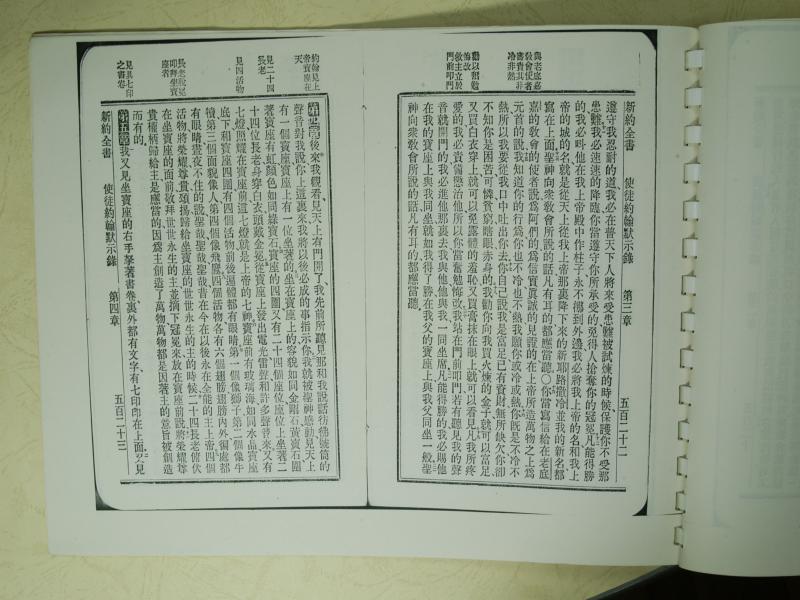 新約全書 使徒約翰默示錄 第三章 五百二十二
遵守我忍耐的道我必在普天下人將來受患難被試煉的時候保護你不受那
患難我必速速的降臨你當遵守你所承受的免得人搶奪你的冠冕凡能得勝
的我必叫他在我上帝殿中作柱子永不挪到外邊我必將我上帝的名和我上
帝的城的名就是從天上從我上帝那裏降下來的新耶路撒冷並我的新名都
寫在上面聖神向衆敎會所說的話凡有耳的都應當聽〇你當寫信給在老底
嘉的敎會的使者說爲阿們的爲信實眞誠的見證的在上帝所造萬物之上爲
元首的說我知道你的行爲你也不冷也不熱我願你或冷或熱你旣是不冷不
熱所以我要從我口中吐出你去你自己說我是富足已有貲財無所缺欠你卻
不知你是困苦可憐貧窮瞎眼赤身的我勸你向我買火煉的金子就可以富足
又買白衣穿上就可以免露體的羞恥又買膏抹在眼上就可以看見凡我所疼
愛的我必責備懲治他所以你當奮勉悔改我站在門前叩門若有聽見我的聲
音就開門的我必進他那裏去我與他他與我一同坐席凡能得勝的我必賜他
在我的寶座上與我同坐就如我得了勝在我父的寶座上與我父同坐一般聖
神向衆敎會所說的話凡有耳的都應當聽
與老底嘉
敎會使者
書責其非
冷非熱
勸以奮勉
悔改
救主立於
門前叩門
約翰見上
帝寶座在
天
見二十四
長老
見四活物
長老冠冕
叩拜坐寶
座者
見具七印
之書卷
第四章後來我觀看見天上有門開了我先前所聽見那和我說話彷彿號筒的
聲音對我說你上這裏來我將以後必成的事指示你我就被聖神感動見天上
有一個寶座寶座上有一位坐著的坐在寶座上的容貌如同金剛石黃寶石圍
著寶座有虹顏色如同綠寶石寶座的四圍又有二十四個座位座位上坐著二
十四位長老身穿白衣頭戴金冕從寶座上發出電光雷聲和許多聲音來又有
七燈照耀在寶座前這七燈就是上帝的七神寶座前有玻璃海如同水晶寶座
底下和寶座四圍有四個活物前後遍體都有眼睛第一個像獅子第二個像牛
犢第三個面貌像人第四個像飛鷹四個活物各有六個翅膀翅膀內外徧處都
有眼睛晝夜不住的說聖哉聖哉聖哉昔在今在以後永在全能的主上帝四個
活物將榮耀尊貴頌揚歸給坐寶座的世世永生的主的時候二十四長老俯伏
在坐寶座的面前敬拜世世永生的主並摘下冠冕來放在寶座前說將榮耀尊
貴權柄歸給主是應當的因爲主創造了萬物萬物都是因著主的意旨被創造
而有的
第五章我又見坐寶座的右手拏著書卷裏外都有文字有七印印在上面又見
新約全書 使徒約翰默示錄 第四章 五百二十三